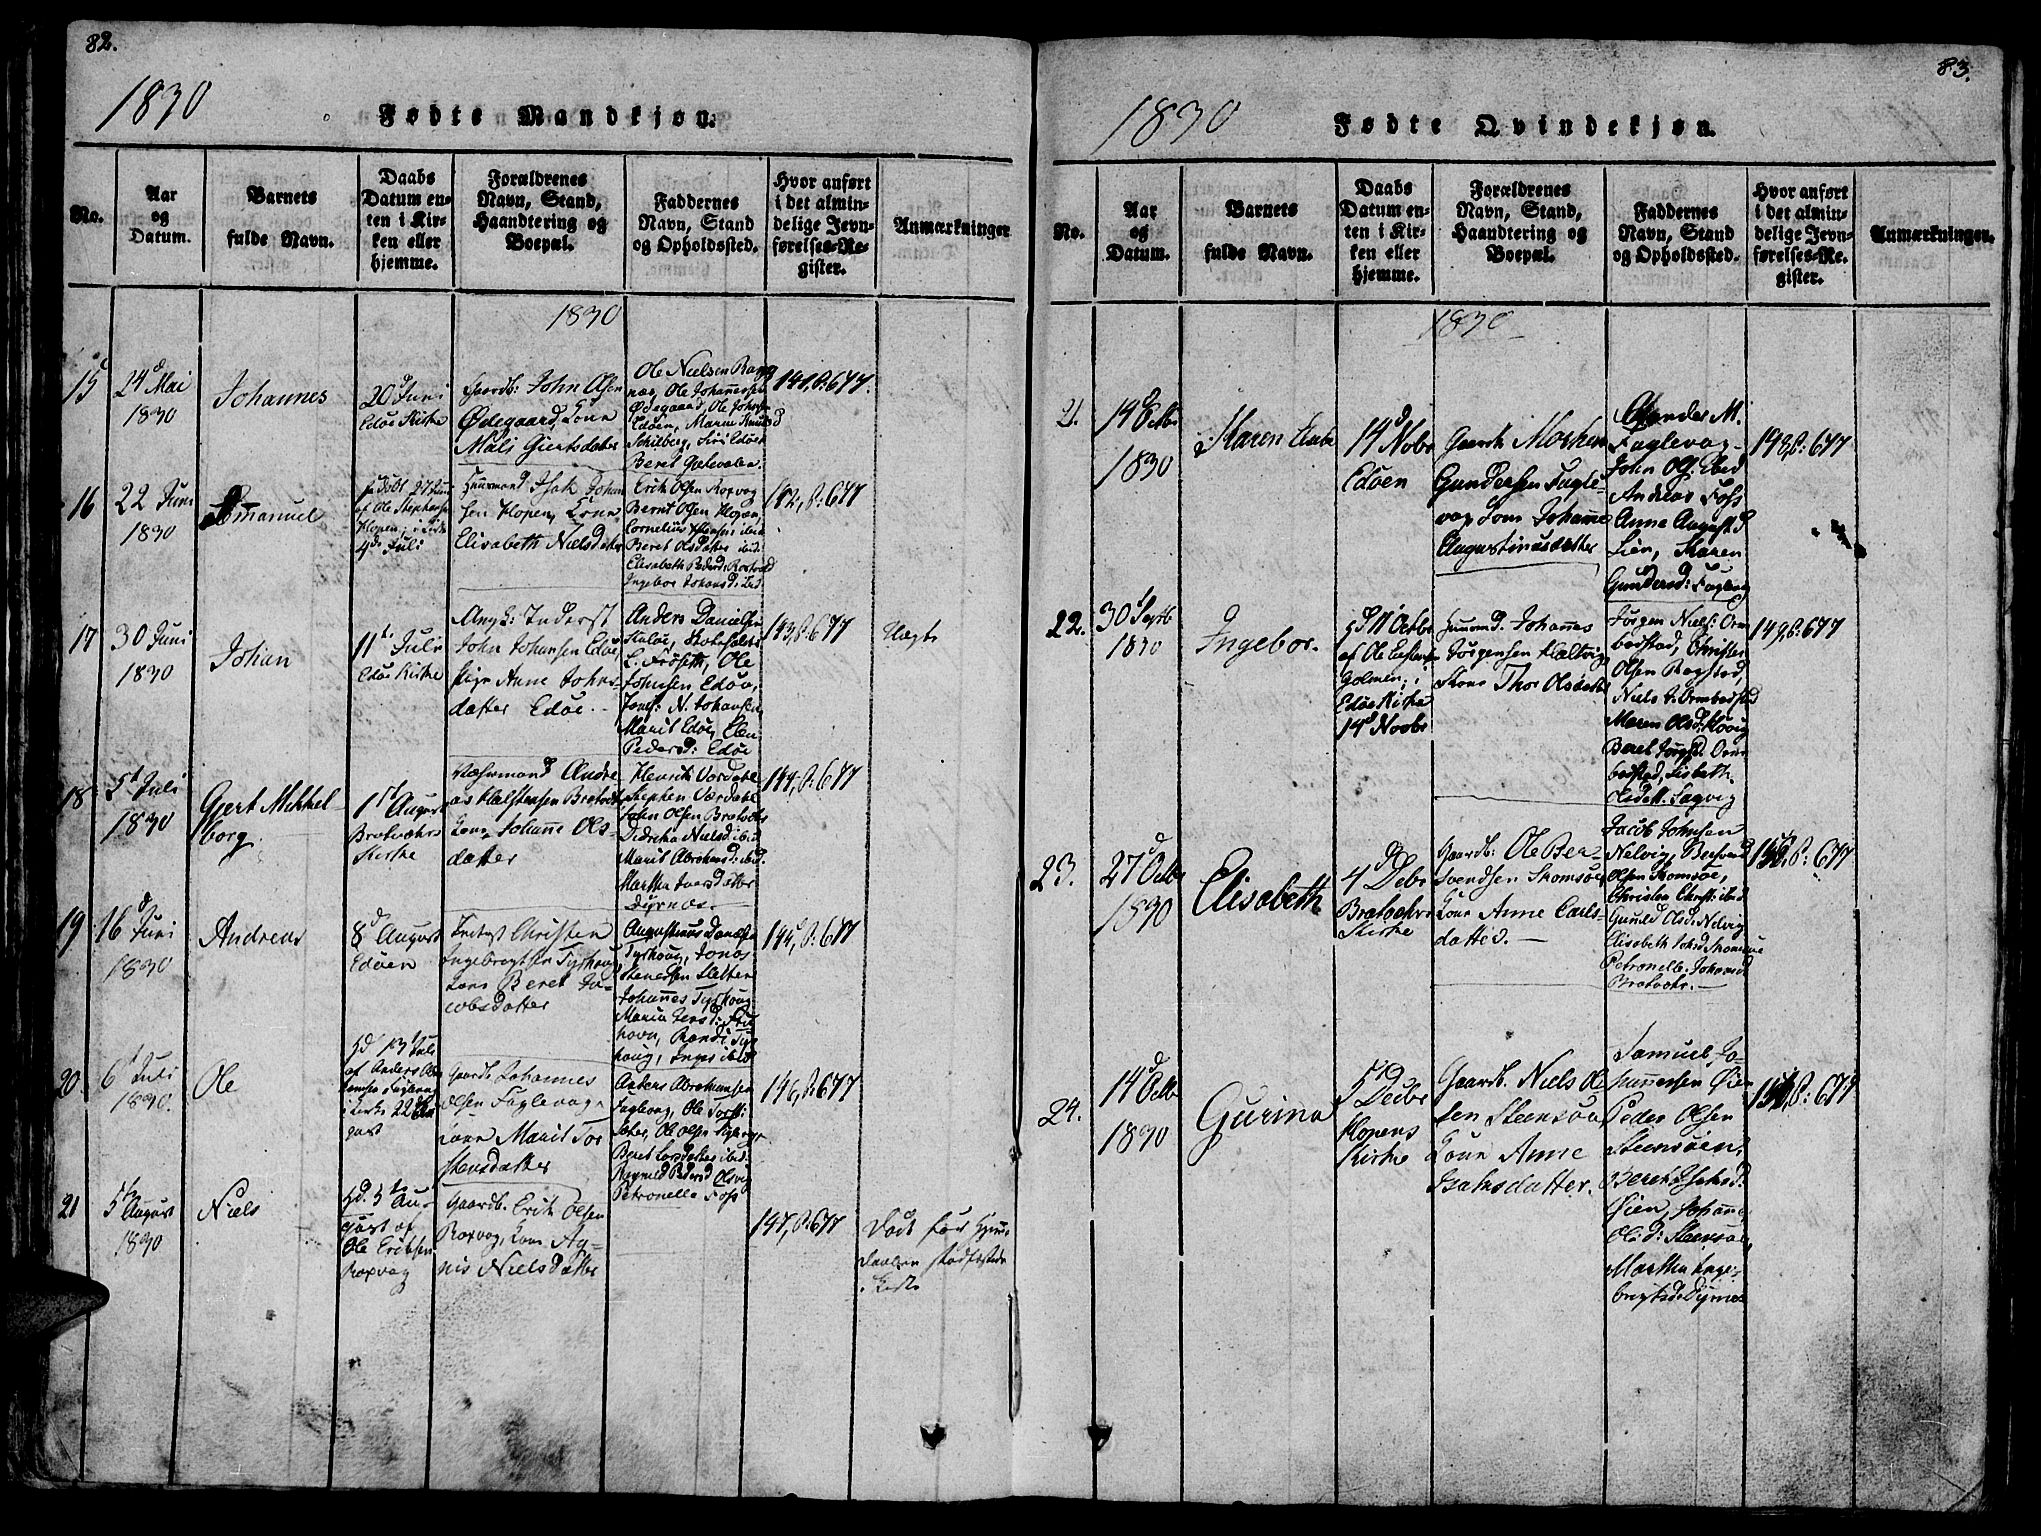 82.
1830
Fødte Mandkjøn.
No.
Aar
og
Datum.
Barnets
fulde Navn.
Daabs
Datum en-
ten i Kir-
ken eller
hjemme.
Forældrenes
Navn, Stand,
Haandtering og
Boepæl.
Faddernes
Navn, Stand
og Opholdssted.
Hvor anført
i det almin-
delige Jevn-
førelses-Re-
gister.
Anmærkninger
1830
15
24d Mai
1830
Johannes
20d Juni
Edøe Kirke
Gaardb: John Olsen
Ødegaard, Kone
Mali Giertsdatter
Ole Nielsen
Ole Johannessen
Ødegaard, Ole Johnsen
Edøen, Maren Knudsd
Siri Edøen
Beret
141, P. 677.
16
22 Juni
1830
Emanuel
27 Juni
af Ole Stephensen
Klopen, i Kirke
4de Juli
Huusmand Isak Johan
sen Hopen, Kone
Elisabeth Nielsdatter
Erik Olsen Roxvog
Bernt Olsen Hopen
Cornelius
Beret Olsdatter ibid
Elisabeth Pedersd:
Ingebor Johansd: ibid
142, P. 677
17
30 Juni
1830
Johan
11te Juli
Edøe Kirke
Ungk: Inderst
John Johansen Edøe,
Pige Anne Johns-
datter Edøe.
Anders Danielsen
Ole
Johnsen Edøen,
N. Johansen
Marit Edøe, Elen
Pedersd: Edøe
143, P. 677
Uægte
18
5d Juli
1830
Gjert Mikkel-
borg
1ste August
Bratværs
Kirke
Andre-
as Halstensen Bratvær
Kone Johanne Ols-
datter
Henrik Værdahl
Stephen Værdahl
John Olsen Bratvær
Didrika Nielsd ibid
Marit Abrahamsd: ibid.
Martha Iversdatter
Dyrnæs.
144, P. 677
19
16d Juni
1830
Andreas
8d August
Edøen
Inderst Christen
Ingebrigtsen Tyrhoug
Kone Beret Ja-
cobsdatter
Augustinus
Tyrhoug, Jonas
Stenersen
Johannes Tyrhoug
Maria
Randi Tyr
houg, Inger ibid
145, P. 677
20
6d Juli
1830.
Ole
hd 13d Juli
af Anders
i Kirke 22 Au
gust
Gaardb Johannes
Olsen Faglevag
Kone Marit Tor
stensdatter
Anders Abrahamsen
Faglevag, Ole Torst:
Ole Olsen
Beret Larsdatter ibid
Ragnild Pedersd
Petronelle Foss
146, P. 677
21
5te August
1830
Niels
hd. 5te Au-
gust af
Ole Eriksen
Roxvag
Gaardb. Erik Olsen
Roxvag, Kone Ag-
nis Nielsdatter
147, P. 677
Død før Hjem-
daaben stadfæstedes
i Kirke
83.
1830
Fødte Qvindekjøn.
No.
Aar
og
Datum.
Barnets
fulde Navn.
Daabs
Datum en-
ten i Kir-
ken eller
hjemme.
Forældrenes
Navn, Stand,
Haandtering og
Boepæl.
Faddernes
Navn, Stand
og Opholdssted.
Hvor anført
i det almin-
delige Jevn-
førelses-Re-
gister.
Anmærkninger.
1830
21.
14 Octbr
1830
Karen
14d Novbr
Edøen
Gaardb Morten
Gundersen Fagle-
vag Kone Johanne
Augustinusdatter
Gunder M.
Faglevag
John Ols: ibid
Andreas Foss
Anne Augustd
Lien, Karen
Gundersd: Faglevag
148, P: 677
22.
30d Septb
1830
Ingebor.
hd 11 Octbr
af Ole
Golmen, i
Edøe Kirke
14d Novbr
Huusmd. Johannes
Jørgensen
Kone Thor Olsdatter
Jørgen Niels: Orn
bogstad, Christen
Olsen
Niels
Maren Olsd:
Beret Jørgsd: Orn
bogstad, Lisbeth
Olsdatt. Fagvig
149, P: 677
23.
27d Octbr
1830
Elisabeth
4d Debr
Bratvær
Kirke
Gaardb: Ole Ber-
svendsen Skomsøe,
Kone Anne Carls-
datter.
Jacob Johnsen
Nelvig, Bersvend
Olsen Skomsøe,
Christen Christ: ibid
Gunild Olsd: Nelvig
Elisabeth Johsd: Skomsøe
Petronelle Johansd
Bratvær.
150, P: 677
24.
14d Octbr
1830
Gurina
5d Decbr
Hopens
Kirke
Gaardb. Niels Ole
sen Steensøe,
Kone Anne
Isaksdatter.
Samuel Jo-
hannessen Øien
Peder Olsen
Steensøen,
Beret Isaksd:
Øien, Johanne
Olsd: Steensøe,
Martha Inge-
brigtsd: Dyrnæs
151, P: 677